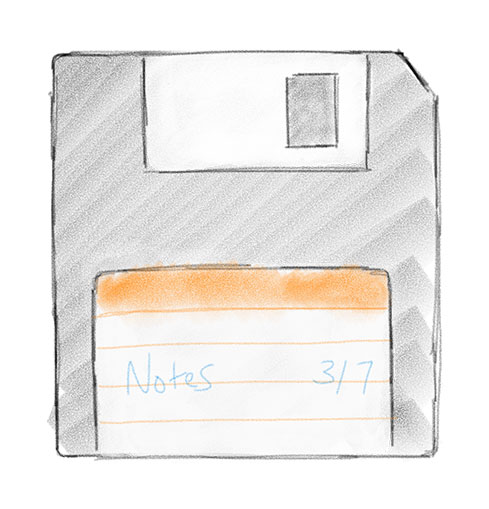 Notes 3/7